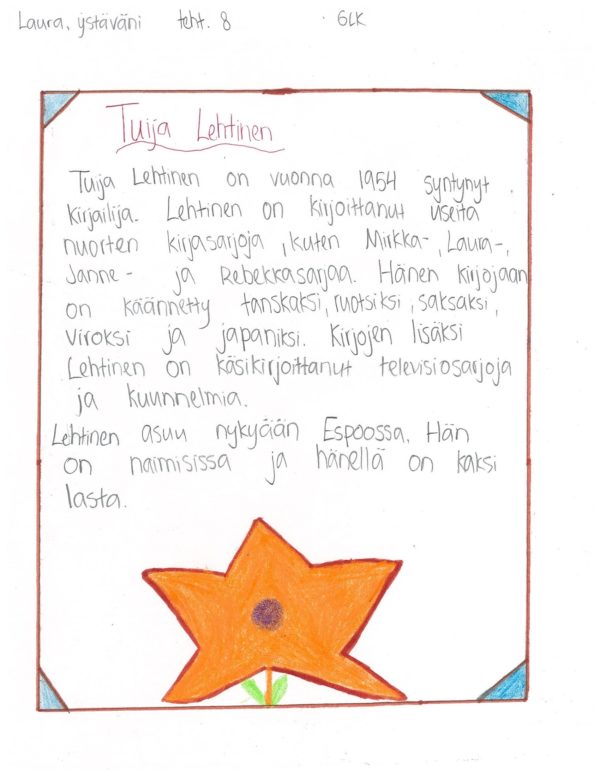 Laura, ystäväni teht. 8 6LK
Tuija Lehtinen
Tuija Lehtinen on vuonna 1954 syntynyt
kirjailija. Lehtinen on kirjoittanut useita
nuorten kirjasarjoja, kuten Mirkka-, Laura-,
Janne- ja Rebekkasarjaa. Hänen kirjojaan
on käännetty tanskaksi, ruotsiksi, saksaksi,
viroksi ja japaniksi. Kirjojen lisäksi
Lehtinen on käsikirjoittanut televisiosarjoja
ja kuunnelmia.
Lehtinen asuu nykyään Espoossa. Hän
on naimisissa ja hänellä on kaksi
lasta.